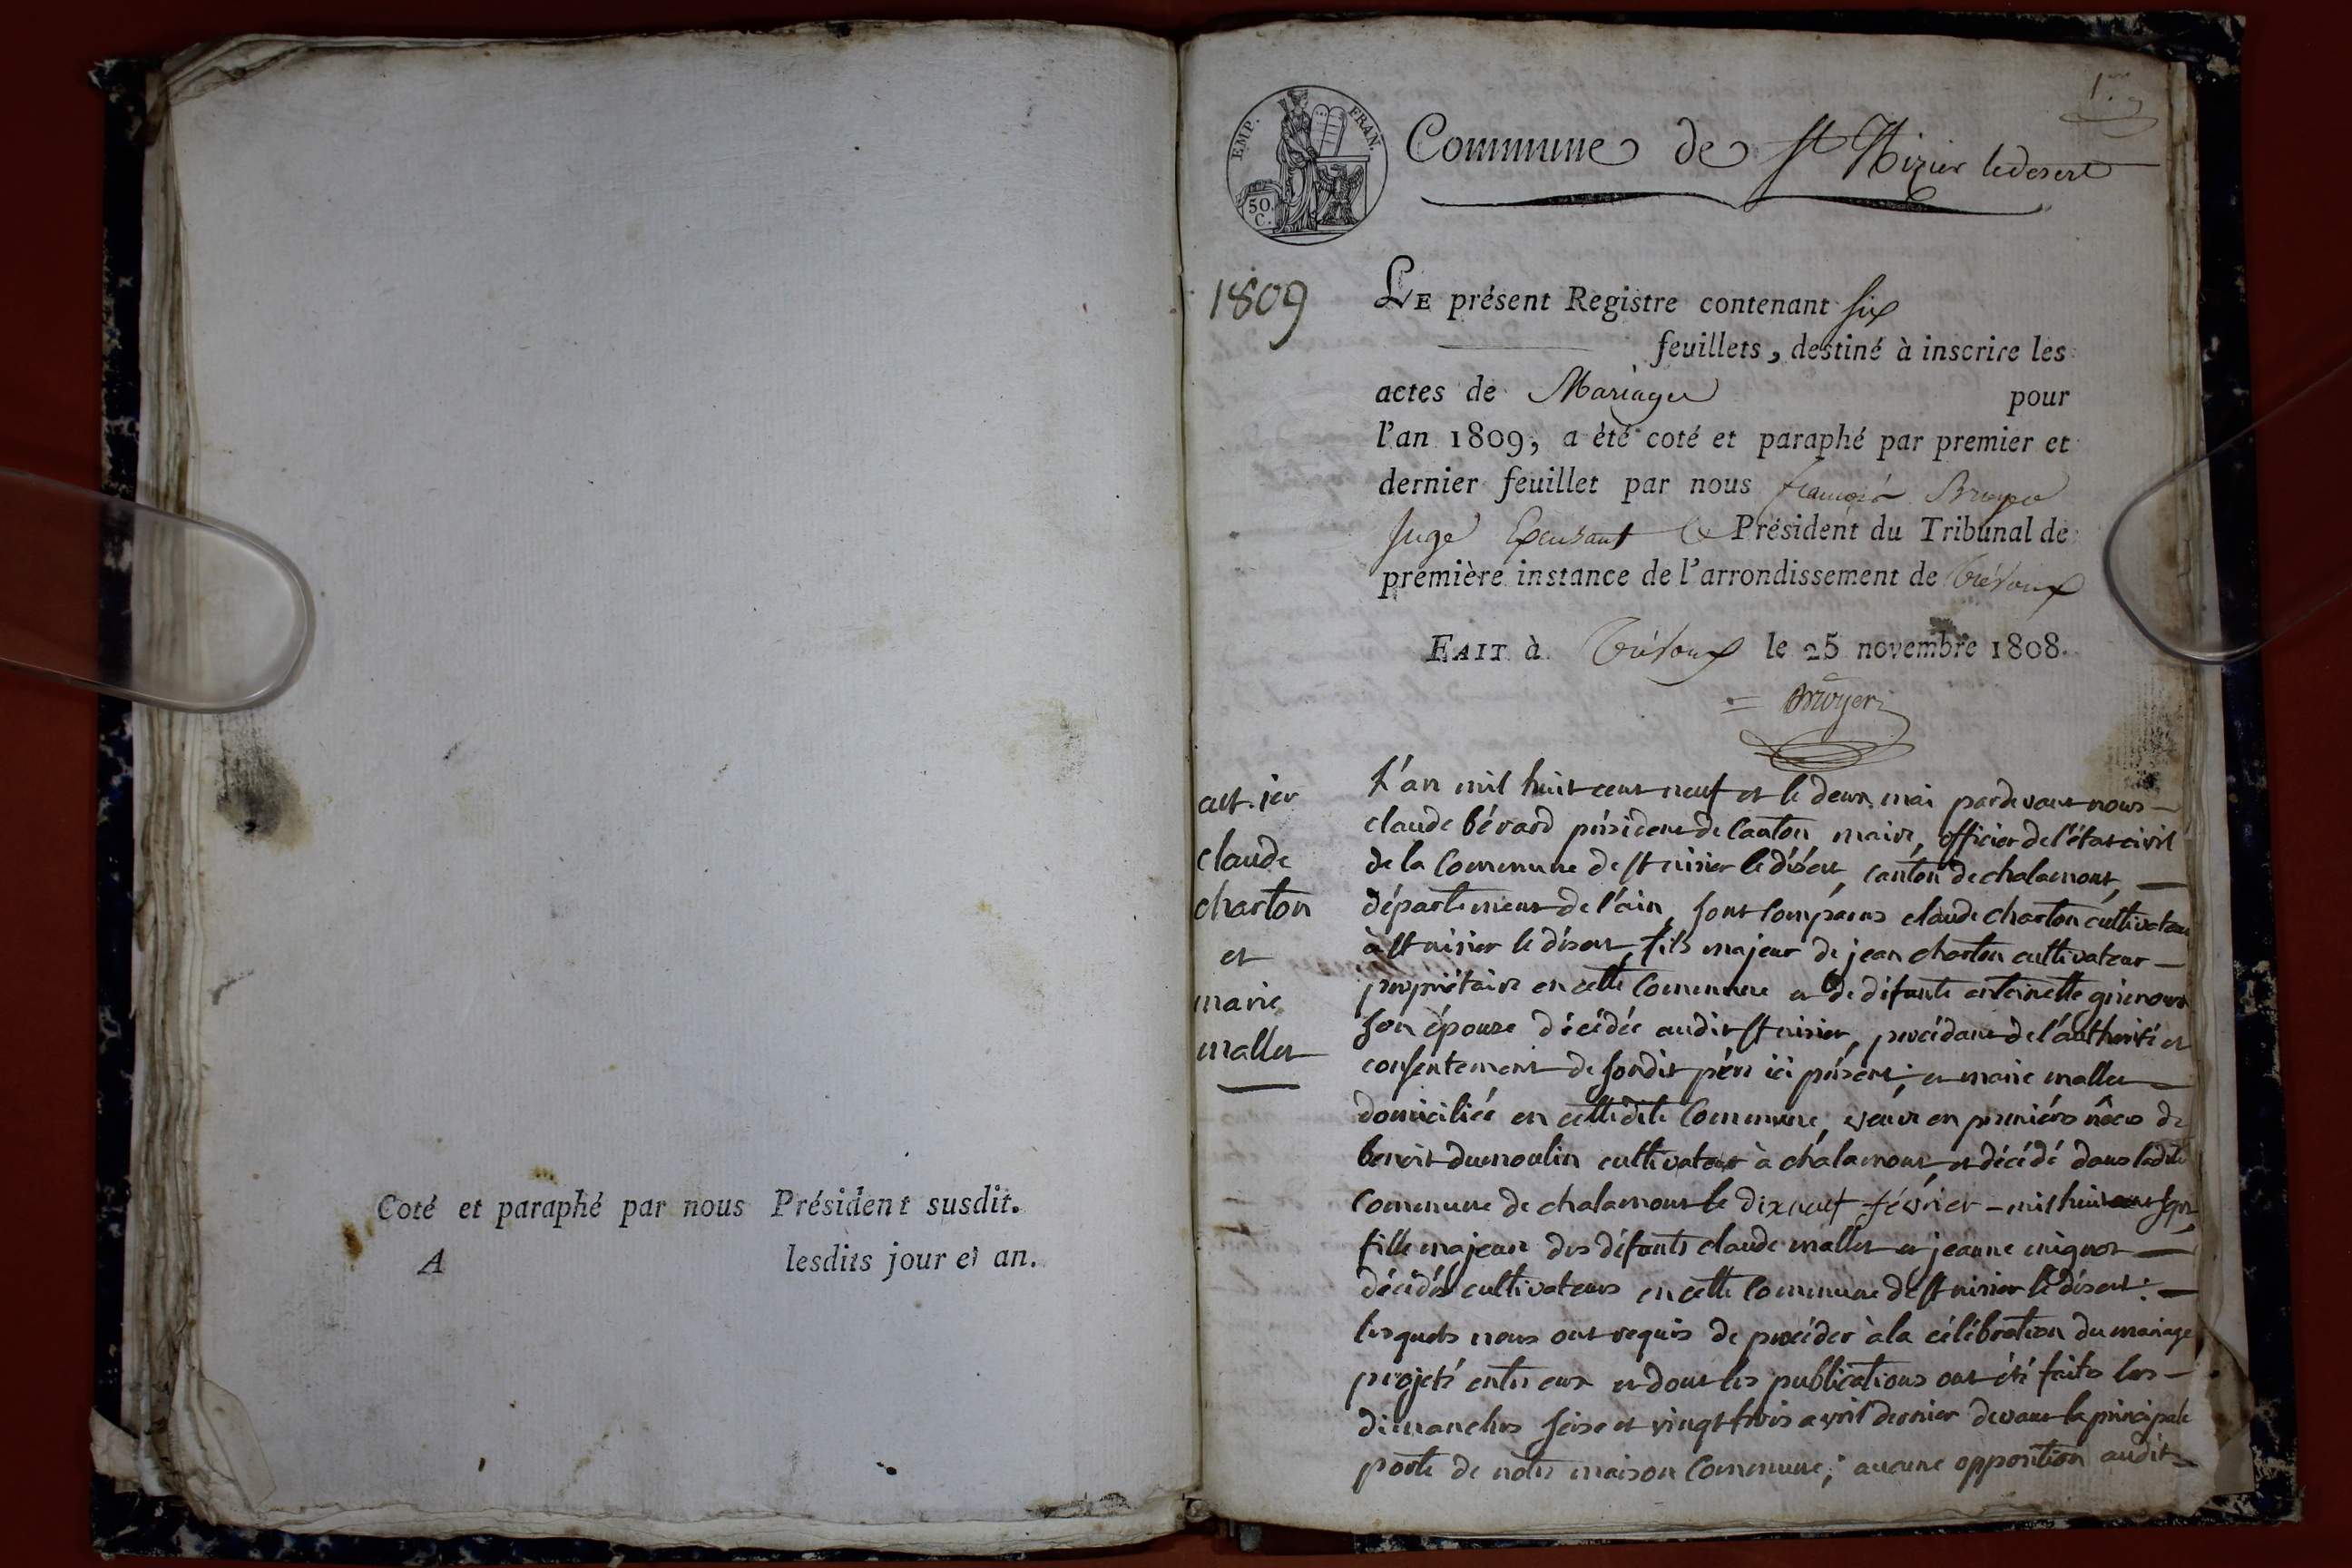 Coté et paraphé par nous Président susdit.
A lesdits jour et an.
1er
EMP. FRAN.
50.
C.
Commune de St Nizier le desert
1809
LE présent Registre contenant six
feuillets, destiné à inscrire les
actes de Mariages pour
l'an 1809, a été coté et paraphé par premier et
dernier feuillet par nous françois
Juge Exerçant Le Président du Tribunal de
première instance de l'arrondissement de Trévoux
FAIT à Trévoux le 25 novembre 1808.
act. 1er
claude
charton
et
marie
mallet
L'an mil huit cent neuf et le deux mai pardevant nous
claude bévard président de Canton maire, officier de l'état civil
de la Commune de St nisier le désert, canton de chalamont,
département de l'ain, sont comparus claude charton cultivateur
à St nisier le désert, fils majeur de jean charton cultivateur
propriétaire en cette Commune et de défunte antoinette
son épouse décédée audit St nisier, procédant de l'authorité et
consentement de sondit père ici présent; et marie mallet
domiciliée en cettedite Commune, veuve en premières nôces de
benoit dumoulin cultivateur à chalamont et décédé dans ladite
Commune de chalamont le dixneuf février mil huit cent sept,
fille majeure des défunts claude mallet et jeanne mignot
décédés cultivateurs en cette Commune de St nisier le désert:
lesquels nous ont requis de procéder à la célébration du mariage
projeté entre eux et dont les publications ont été faites les
dimanches seise et vingt trois avril dernier devant la principale
porte de notre maison Commune; aucune opposition audit